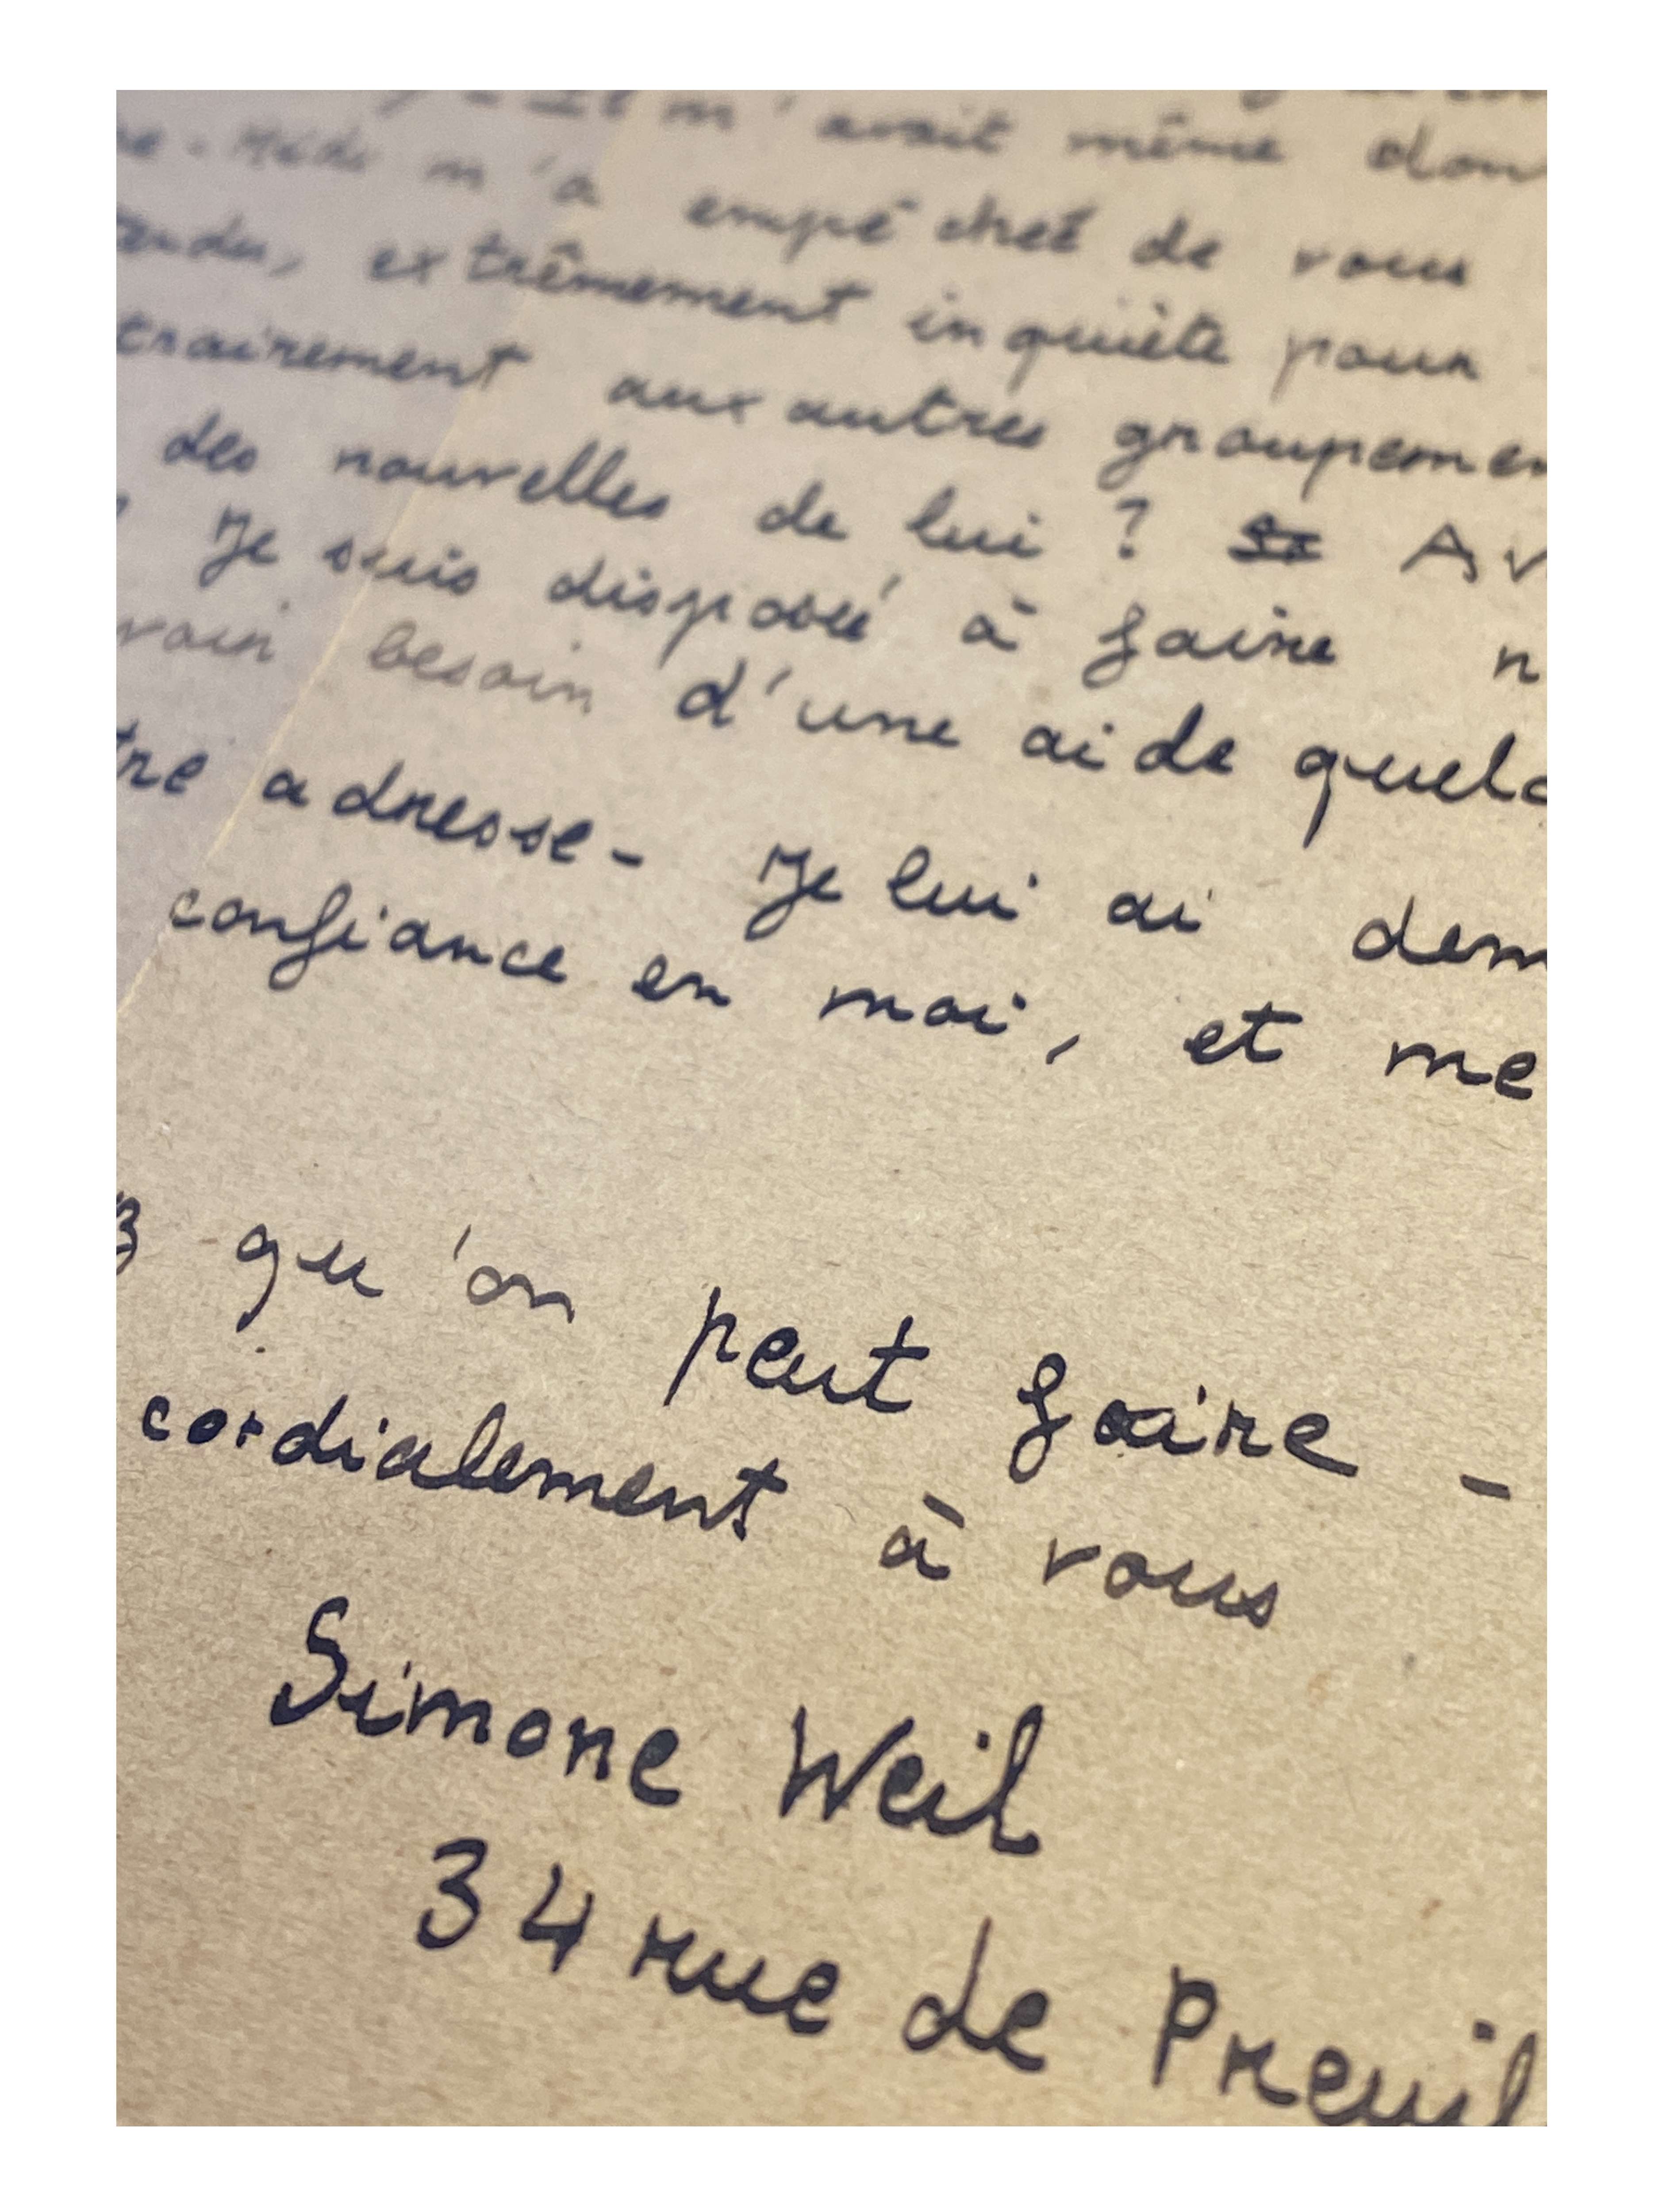 m'avait même don
m'a empêcheé de vous
tendu, extrêmement inquiète pour
trairement aux autres groupemen
des nouvelles de lui ? Av
Je suis disposé à faire n
voir besoin d'une aide quelc
tre adresse - Je lui ai dem
confiance en moi, et me
z qu'on peut faire -
cordialement à vous
Simone Weil
34 rue de Preuil